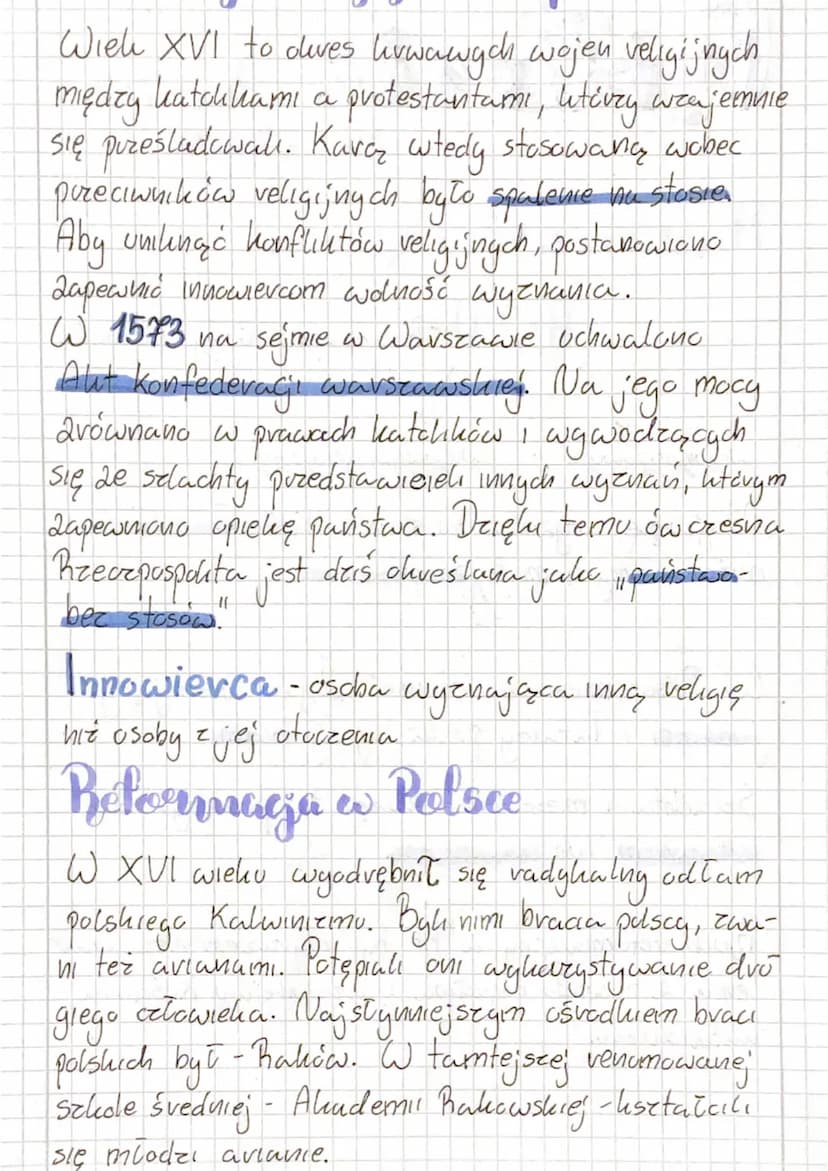 Wiek XVI to okres krwawych wojen religijnych
między katolikami a protestantami, którzy wzajemnie
się prześladowali. Karą wtedy stosowaną wobec
przeciwników religijnych było spalenie na stosie.
Aby uniknąć konfliktów religijnych, postanowiono
zapewnić innowiercom wolność wyznania.
W 1573 na sejmie w Warszawie uchwalono
Akt konfederacji warszawskiej. Na jego mocy
zrównano w prawach katolików i wywodzących
się ze szlachty przedstawicieli innych wyznań, którym
zapewniono opiekę państwa. Dzięki temu ówczesna
Rzeczpospolita jest dziś określana jako „państwo-
bez stosów."
Innowierca - osoba wyznająca inną religię
niż osoby z jej otoczenia
Reformacja w Polsce
W XVI wieku wyodrębnił się radykalny odłam
polskiego Kalwinizmu. Byli nimi bracia polscy, zwa-
ni też arianami. Potępiali oni wykorzystywanie dru
giego człowieka. Najsłynniejszym ośrodkiem braci
polskich był - Raków. W tamtejszej renomowanej
szkole średniej - Akademii Rakowskiej - kształcili
się młodzi arianie.